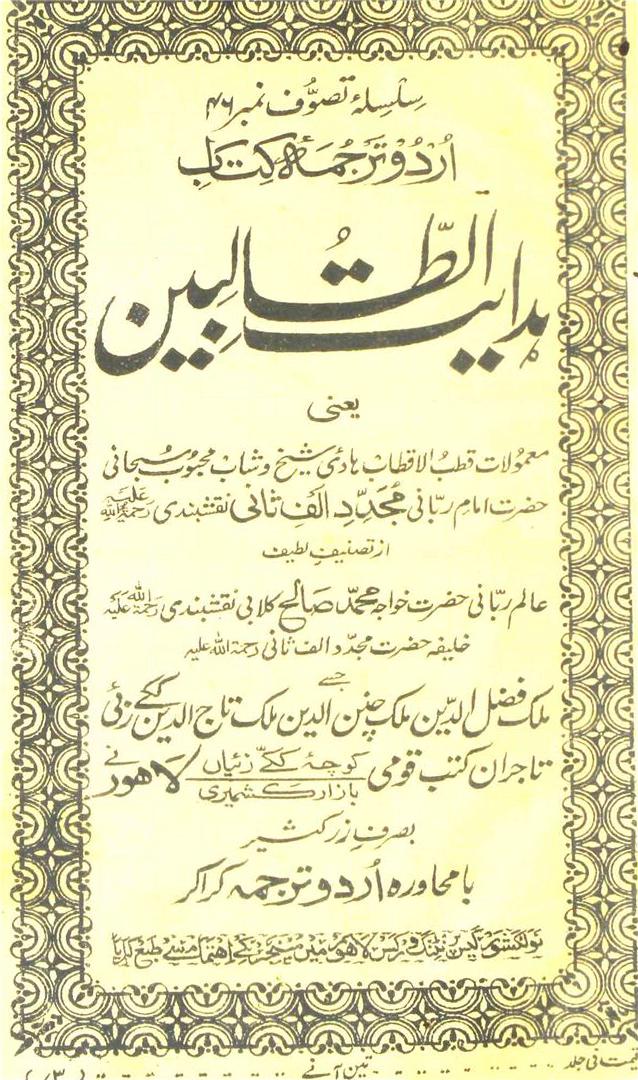 سلسلۂ تصوّف نمبر ۴۶
اُردو ترجمہ کتاب
ہدایت الطّالبین
یعنی
معمولات قطب الاقطاب ہادئ شیخ وشاب محبوب سبحانی
حضرت امام ربانی مجدّد الف ثانی نقشبندی رحمۃ اللہ علیہ
از تصنیف لطیف
عالم ربّانی حضرت خواجہ محمد صالح کلابی نقشبندی رحمۃ اللہ علیہ
خلیفہ حضرت مجدّد الف ثانی رحمۃ اللہ علیہ
جسے
ملک فضل الدّین ملک چنن الدین ملک تاج الدین ککے زئی
تاجران کتب قومی کوچۂ ککے زئیاں بازار کشمیری لاہور نے
بصرف زر کثیر
با محاورہ اُردو ترجمہ کرا کر
نولکشور گیس پرنٹنگ ورکس لاہور میں کے اہتمام سے طبع کرایا
قیمت فی جلد تین آنے (۳؍)